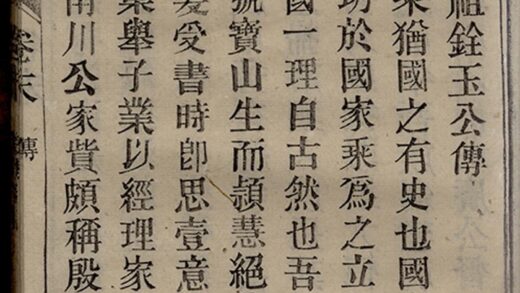 祖銓玉公傳
乘猶國之有史也國
功於國家乘爲之立
國一理自古然也吾
號寶山生而頴慧絕
受書時卽思壹意
業舉子業以經理家
南川公家貲頗稱殷
卷末 傳